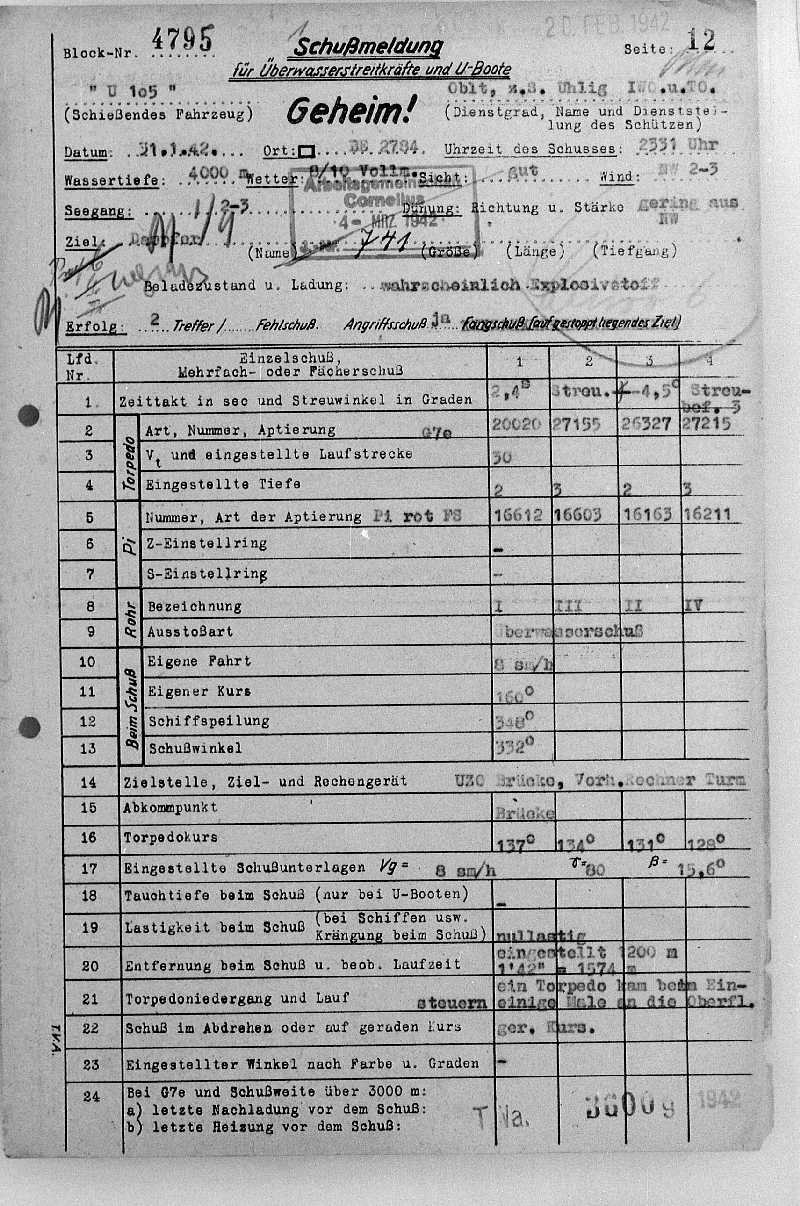 20. FEB. 1942
Block-Nr. 4795 Schußmeldung Seite: 12
für Überwasserstreitkräfte und U-Boote
" U 105 " Oblt, z.S. Uhlig IWO.u.TO.
(Schießendes Fahrzeug) Geheim! (Dienstgrad, Name und Dienststel-
lung des Schützen)
Datum: 31.1.42. Ort: 2784 Uhrzeit des Schusses: 2331 Uhr
Wassertiefe: 4000 m Wetter: 8/10 Vollm. Sicht: gut Wind: NW 2-3
Arbeitsgemein
Cornelius
4- MRZ. 1942
Seegang: 2-3 Dünung: Richtung u. Stärke gering aus
NW
Ziel: Dampfer 741
(Name) (Größe) (Länge) (Tiefgang)
Beladezustand u. Ladung: wahrscheinlich Explosivstoff
Erfolg: 2 Treffer/ Fehlschuß. Angriffsschuß ja (Fangschuß (auf gestoppt liegendes Ziel)
Lfd. Nr. Einzelschuß, Mehrfach- oder Fächerschuß 1 2 3 4
1 Zeittakt in sec und Streuwinkel in Graden 2,4s Streu. 4,5° Streu-
bef. 3
Torpedo
2 Art, Nummer, Aptierung G7e 20020 27155 26327 27215
3 Vt und eingestellte Laufstrecke 30
4 Eingestellte Tiefe 2 3 2 3
Pi
5 Nummer, Art der Aptierung Pi rot FS 16612 16603 16163 16211
6 Z-Einstellring -
7 S-Einstellring -
Rohr
8 Bezeichnung I III II IV
9 Ausstoßart Überwasserschuß
Beim Schuß
10 Eigene Fahrt 8 sm/h
11 Eigener Kurs 160°
12 Schiffspeilung 348°
13 Schußwinkel 332°
14 Zielstelle, Ziel- und Rechengerät UZO Brücke, Vorh.Rechner Turm
15 Abkommpunkt Brücke
16 Torpedokurs 137° 134° 131° 128°
17 Eingestellte Schußunterlagen Vg= 8 sm/h γ= 80 β= 15,6°
18 Tauchtiefe beim Schuß (nur bei U-Booten) -
19 Lastigkeit beim Schuß (bei Schiffen usw.
Krängung beim Schuß) nullastig
20 Entfernung beim Schuß u. beob. Laufzeit eingestellt 1200 m
1'42" = 1574 m
21 Torpedoniedergang und Lauf ein Torpedo kam beim Ein-
steuern einige Male an die Oberfl.
22 Schuß im Abdrehen oder auf geraden Kurs ger. Kurs.
23 Eingestellter Winkel nach Farbe u. Graden -
24 Bei G7e und Schußweite über 3000 m:
a) letzte Nachladung vor dem Schuß:
b) letzte Heizung vor dem Schuß:
T Va. 36009 1942
TVA.